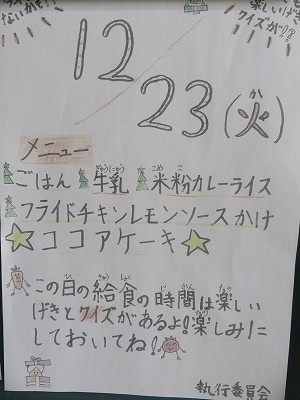 ないかも!?
楽しいげき
クイズが!?
12/23(火)
メニュー
ごはん 牛乳 米粉カレーライス
フライドチキンレモンソースかけ
ココアケーキ
この日の給食の時間は楽しい
げきとクイズがあるよ!楽しみに
しておいてね!
執行委員会